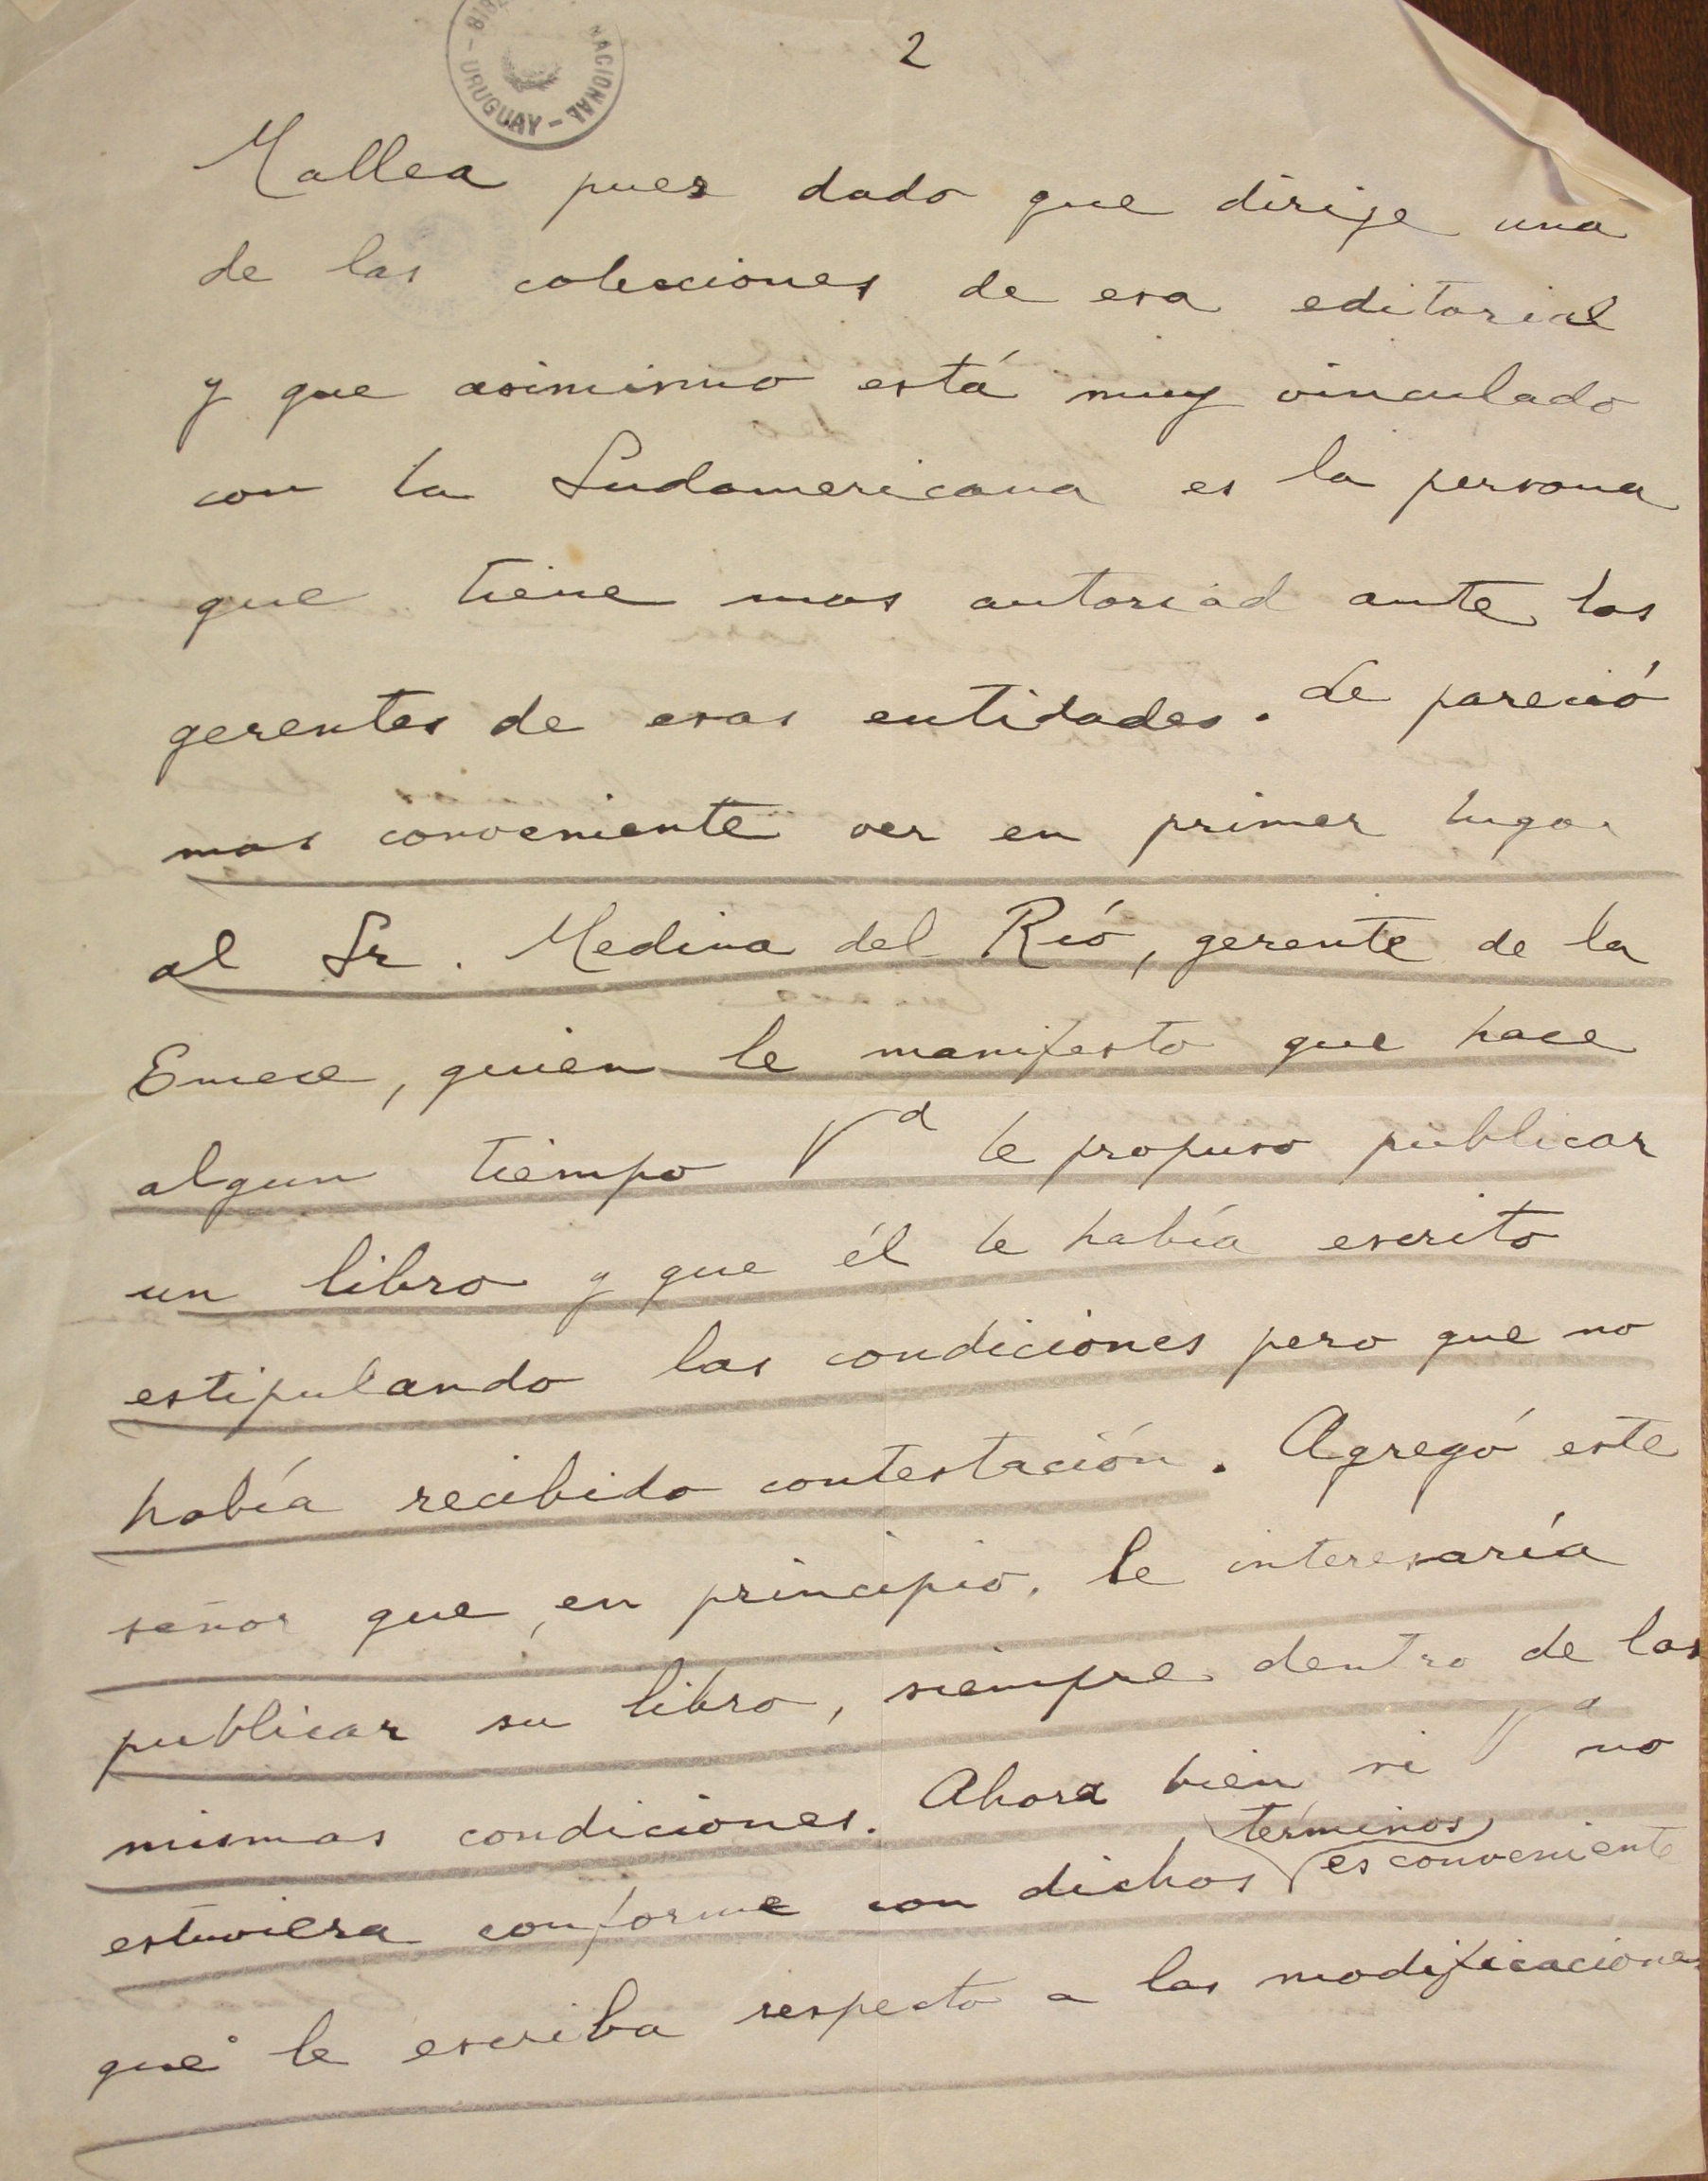 2
BIB NACIONAL - URUGUAY -
Mallea pues dado que dirije una
de las colecciones de esa editorial
y que asimismo está muy vinculado
con la Sudamericana es la persona
que tiene mas autoriad ante los
gerentes de esas entidades. Le pareció
mas conveniente ver en primer lugar
al Sr. Medina del Rió, gerente de la
Emece, quien le manifesto que hace
algun tiempo Vd le propuso publicar
un libro y que él le había escrito
estipulando las condiciones pero que no
había recibido contestación. Agregó este
señor que, en principio, le interesaría
publicar su libro, siempre dentro de las
mismas condiciones. Ahora bien si Vd no
términos
estuviera conforme con dichos es conveniente
que le escriba respecto a las modificaciones